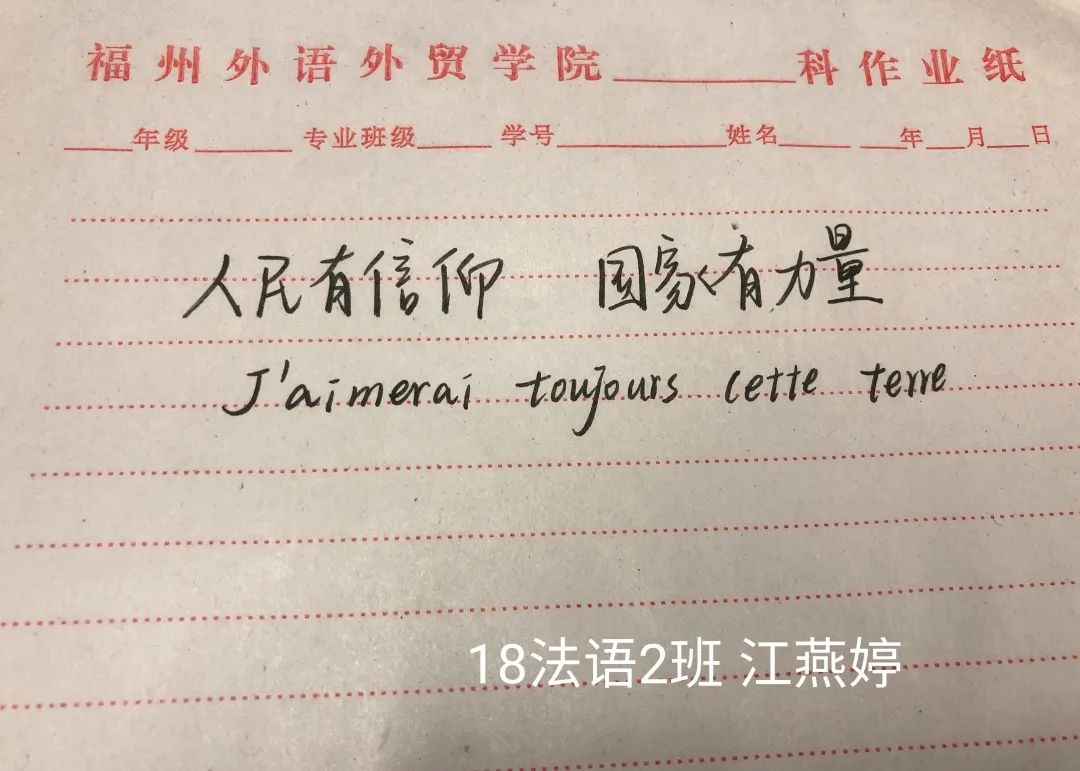 福州外语外贸学院________科作业纸
____年级______ 专业班级_____ 学号__________姓名_____ ___年___月___日
人民有信仰 国家有力量
J'aimerai toujours cette terre
18法语2班 江燕婷